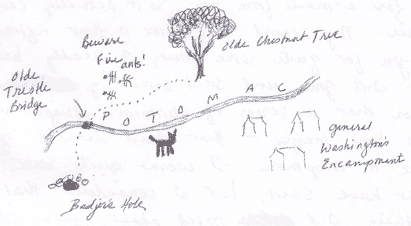 Beware
Fire
ants!
Olde Chestnut Tree
Olde
Trestle
Bridge
POTOMAC
General
Washington's
Encampment
Badjor's Hole